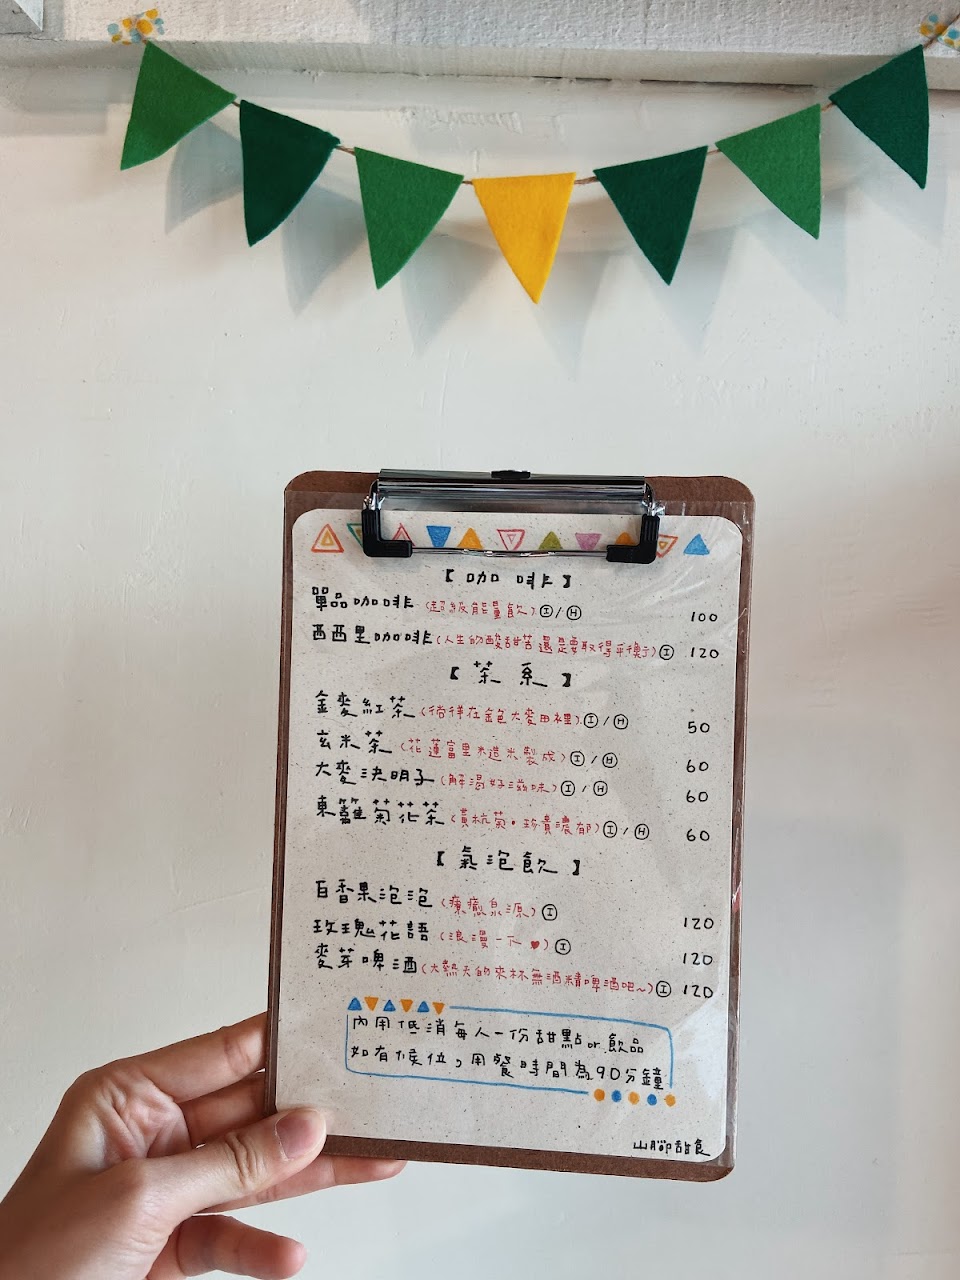 【咖啡】
單品咖啡(超級能量飲)Ⓘ/Ⓗ 100
西西里咖啡(人生的酸甜苦還是要取得平衡了)Ⓘ 120
【茶系】
金麥紅茶(徜徉在金色大麥田裡)Ⓘ/Ⓗ 50
玄米茶(花蓮富里米造米製成)Ⓘ/Ⓗ 60
大麥決明子(解渴好滋味)Ⓘ/Ⓗ 60
東籬菊花茶(黃杭菊·珍貴濃郁)Ⓘ/Ⓗ 60
【氣泡飲】
百香果泡泡(療癒泉源)Ⓘ 120
玫瑰花語(浪漫一下♥)Ⓘ 120
麥芽啤酒(大熱天的來杯無酒精啤酒吧~)Ⓘ 120
內用低消每人一份甜點or飲品
如有候位,用餐時間為90分鐘
山腳甜食